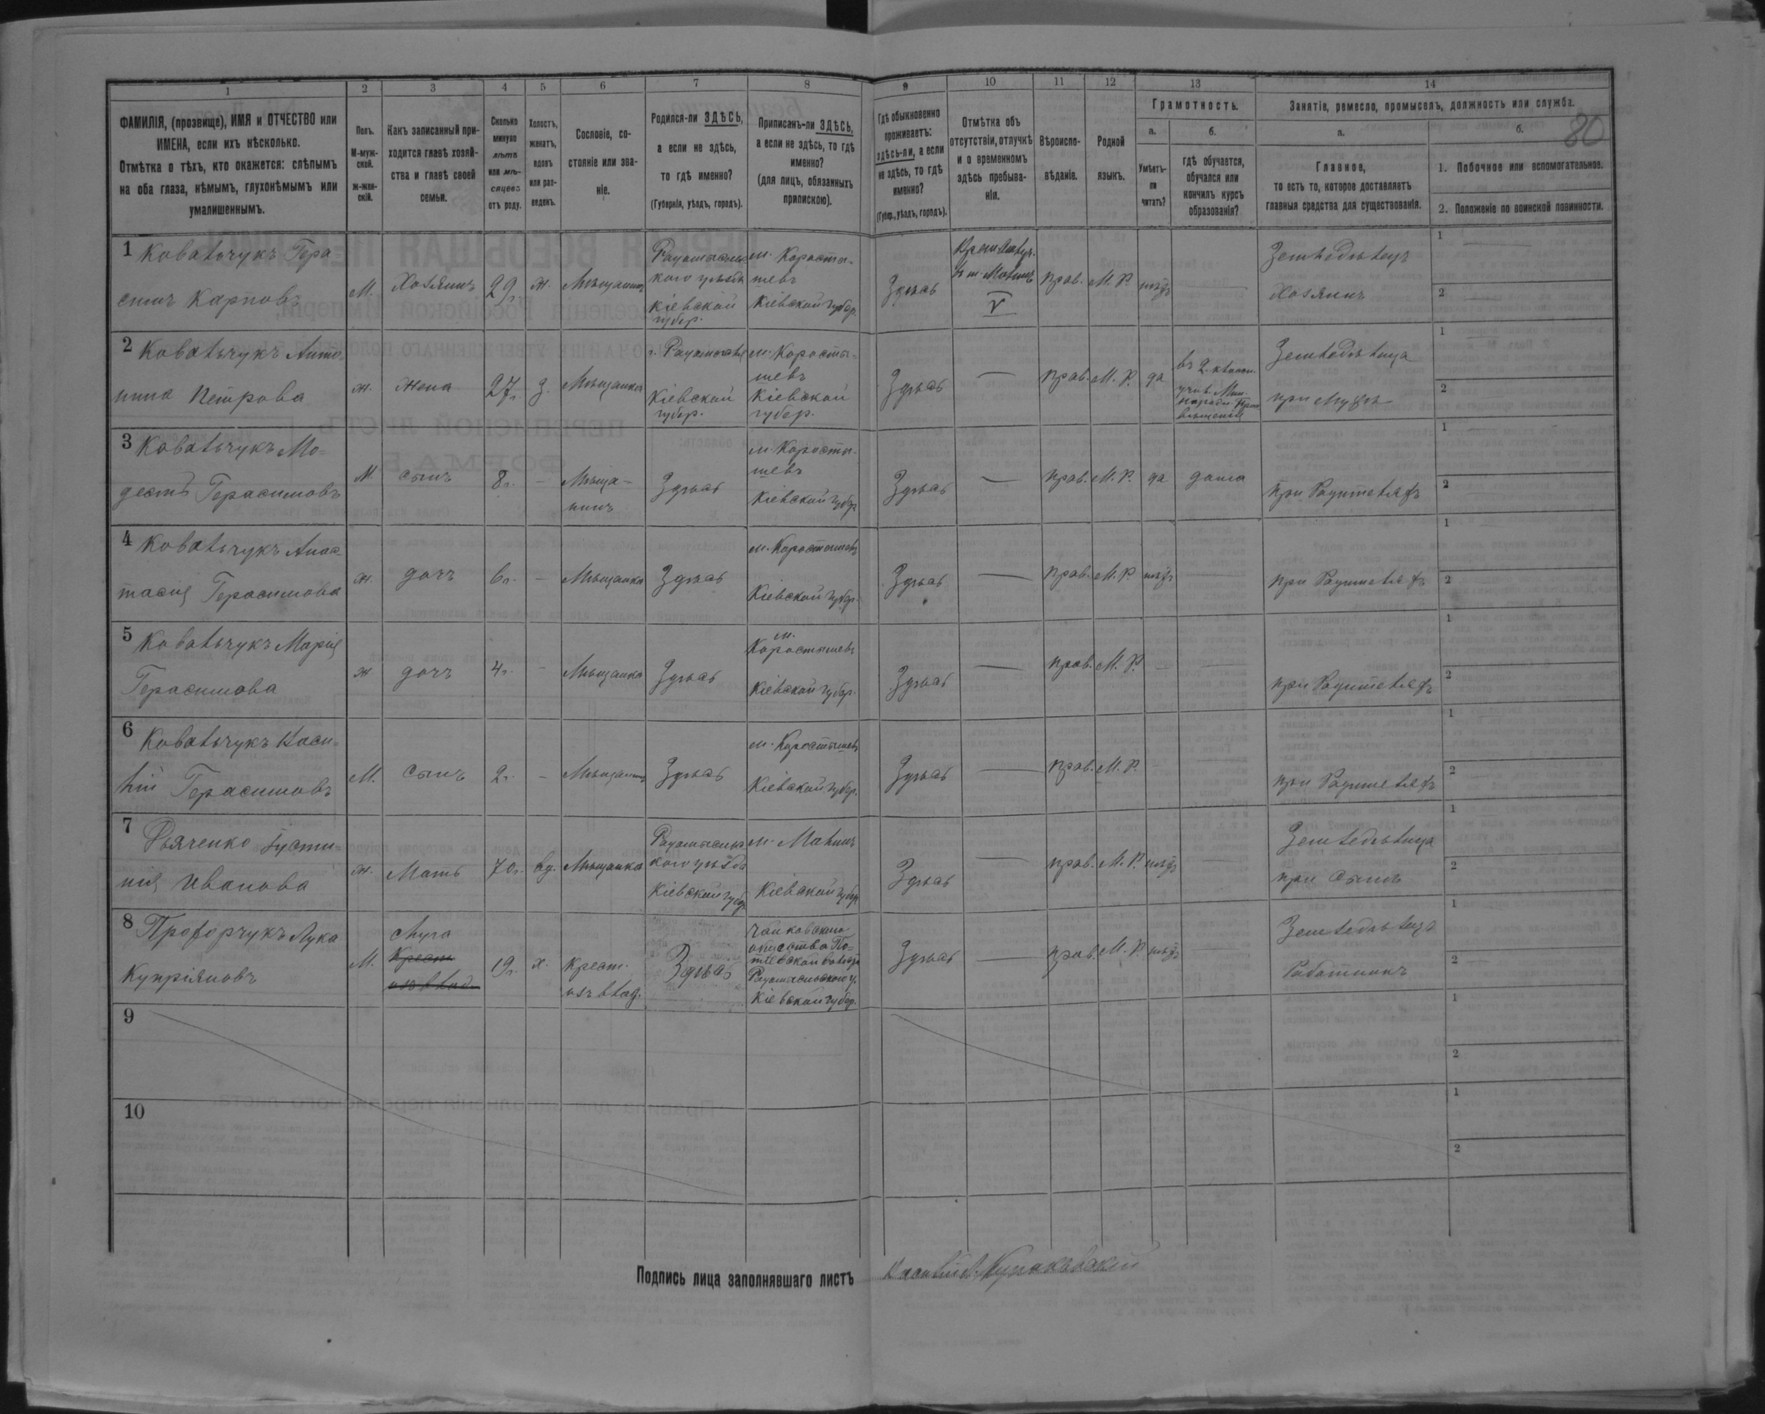 1
2
3
4
5
6
7
8
9
10
11
12
13
14
ФАМИЛІЯ, (прозвище), ИМЯ и ОТЧЕСТВО или
ИМЕНА, если ихъ нѣсколько.
Отмѣтка о тѣхъ, кто окажется: слѣпымъ
на оба глаза, нѣмымъ, глухонѣмымъ или
умалишеннымъ.
Полъ.
М-муж-
ской.
ж-жен-
скій.
Какъ записанный при-
ходится главѣ хозяй-
ства и главѣ своей
семьи.
Сколько
минуло
лѣтъ
или мѣ-
сяцевъ
отъ роду.
Холостъ,
женатъ,
вдовъ
или раз-
веденъ.
Сословіе, со-
стояніе или зва-
ніе.
Родился-ли ЗДѢСЬ,
а если не здѣсь,
то гдѣ именно?
(Губернія, уѣздъ, городъ).
Приписанъ-ли ЗДѢСЬ,
а если не здѣсь, то гдѣ
именно?
(для лицъ, обязанныхъ
припискою).
Гдѣ обыкновенно
проживаетъ:
здѣсь-ли, а если
не здѣсь, то гдѣ
именно?
(Губер., уѣздъ, городъ).
Отмѣтка объ
отсутствіи, отлучкѣ
и о временномъ
здѣсь пребыва-
ніи.
Вѣроиспо-
вѣданіе.
Родной
языкъ.
Грамотность.
а.
Умѣетъ-
ли
читать?
б.
гдѣ обучается,
обучался или
кончилъ курсъ
образованія?
Занятіе, ремесло, промыселъ, должность или служба.
80
а.
Главное,
то есть то, которое доставляетъ
главныя средства для существованія.
б.
1. Побочное или вспомогательное.
2. Положеніе по воинской повинности.
1 Ковальчукъ Гера
симъ Карповъ
М.
Хозяинъ
29г.
ж
Мѣщанинъ
Кіевской
губер.
м. Коросты-
шевъ
Кіевской губер.
Здѣсь
прав.
М. Р.
нѣтъ
Земледѣлецъ
Хозяинъ
1
2
2 Ковальчукъ Анто
нина Петрова
ж.
жена
27г.
з.
Мѣщанка
Кіевской
губер.
м. Коросты-
шевъ
Кіевской
губер.
Здѣсь
прав.
М. Р.
да
Земледѣлица
при Мужѣ
1
2
3 Ковальчукъ Мо-
дестъ Герасимовъ
М
сынъ
8г.
Мѣща-
нинъ
Здѣсь
м. Коросты-
шевъ
Кіевской губер
Здѣсь
прав.
М. Р.
да
дома
при Родителяхъ
1
2
4 Ковальчукъ Анас
тасія Герасимова
ж.
дочь
6г.
Мѣщанка
Здѣсь
м. Коростышевъ
Кіевской губер.
Здѣсь
прав.
М. Р
нѣтъ
при Родителяхъ
1
2
5 Ковальчукъ Марія
Герасимова
ж
дочь
4г.
Мѣщанка
Здѣсь
м.
Коростышевъ
Кіевской губер.
Здѣсь
прав.
М. Р.
при Родителяхъ
1
2
6 Ковальчукъ Васи-
лій Герасимовъ
М.
сынъ
2г.
Мѣщанинъ
Здѣсь
м. Коростышевъ
Кіевской губер.
Здѣсь
прав.
М. Р.
при Родителяхъ
1
2
7 Дьяченко Іусти-
нія Иванова
ж.
Мать
70г.
вд.
Мѣщанка
Радомысльс
кого уѣзда
Кіевской губер
м. Малинъ
Кіевской губер
Здѣсь
прав.
М. Р.
нѣтъ
Земледѣлица
при Сынѣ
1
2
8 Прохорчукъ Лука
Купріяновъ
М.
слуга
19г.
х.
крест.
изъ влад.
Здѣсь
Кіевской губер.
Здѣсь
прав.
М. Р
нѣтъ
Работникъ
1
2
9
1
2
10
1
2
Подпись лица заполнявшаго листъ